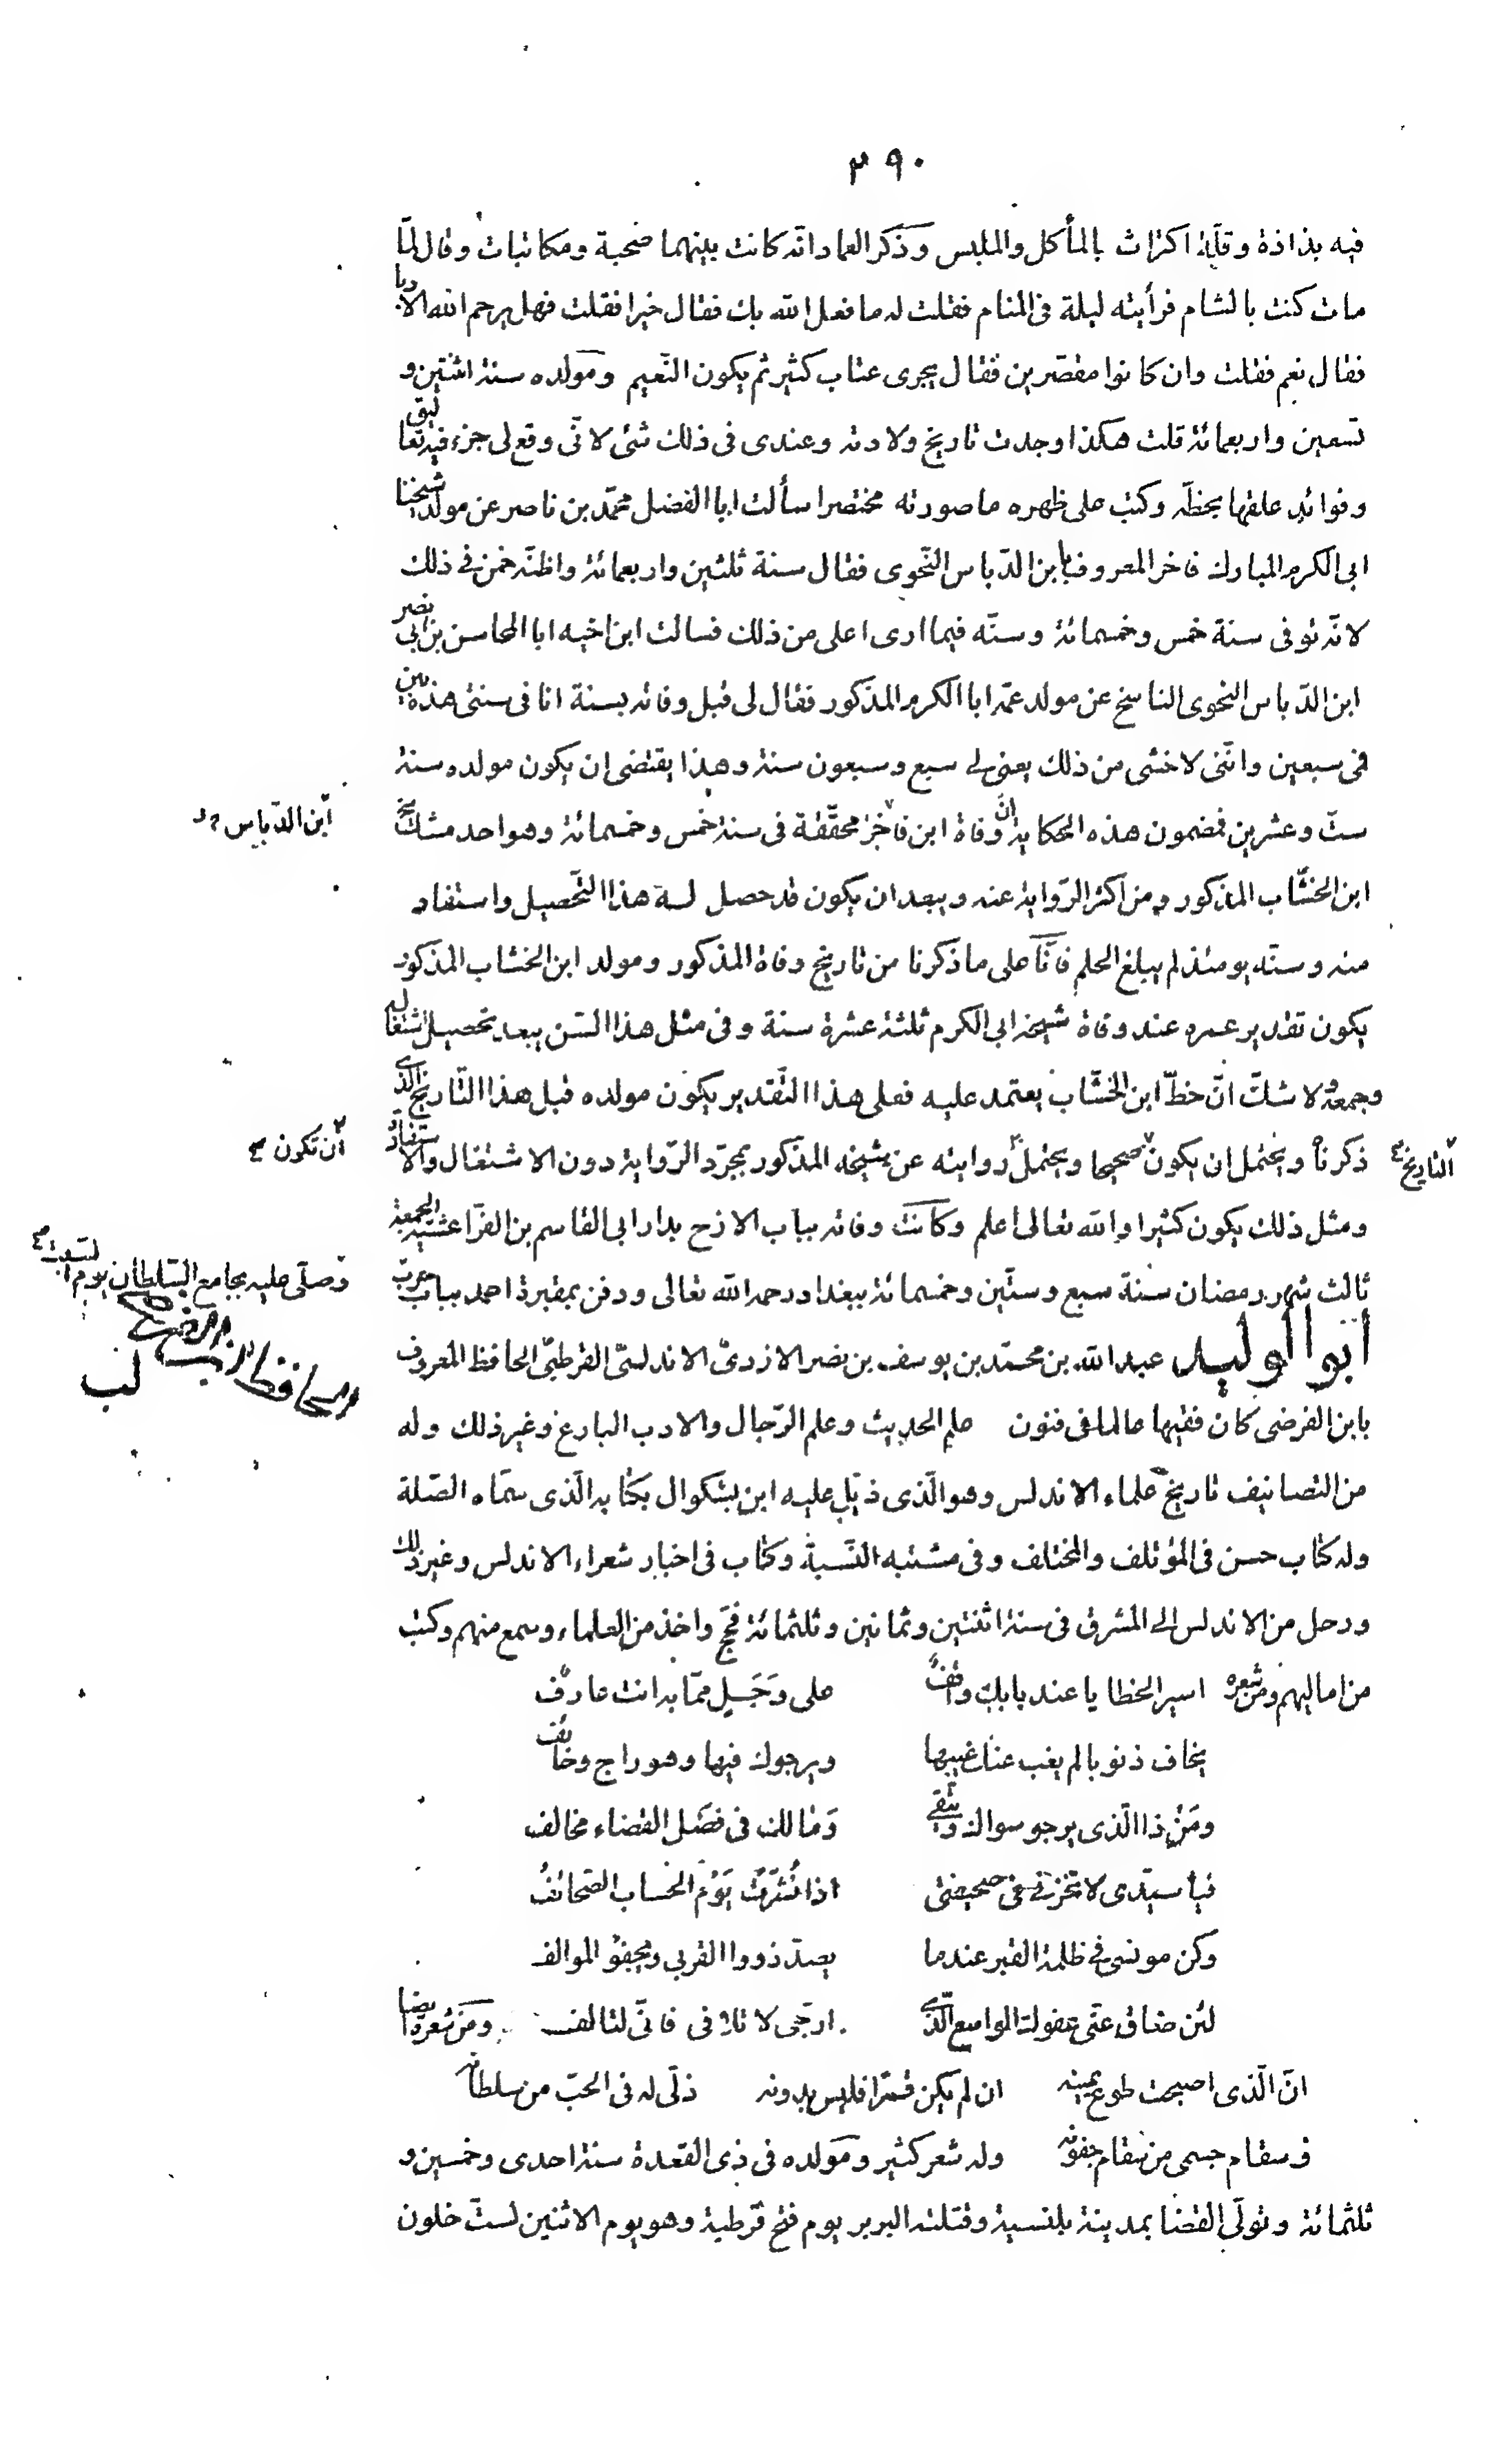 ٢٩٠
فيه بذاذة وقلّة اكتراث بالمأكل والملبس وذكر العماد انّه كانت بينهما صحبة ومكاتبات وقال لمّا
مات كنت بالشام فرأيته ليلة فى المنام فقلت له ما فعل الله بك فقال خيرا فقلت فهل يرحم الله الادبا
فقال نعم فقلت وان كانوا مقصّرين فقال يجرى عتاب كثير ثم يكون النّعيم ومولده سنة اثنتين و
تسعين واربعمائة قلت هكذا وجدت تاريخ ولادته وعندى فى ذلك شئ لانّى وقع لى جزء فيه تعاليق
وفوائد علقها بخطّه وكتب على ظهره ما صورته مختصرا سألت ابا الفضل محمّد بن ناصر عن مولد شيخنا
ابى الكرم المبارك فاخر المعروف بابن الدّباس النّحوى فقال سنة ثلثين واربعمائة واظنّه خمن فى ذلك
لانّه توفى سنة خمس وخمسمائة وسنّه فيما ارى اعلى من ذلك فسالت ابن اخيه ابا المحاسن بن ابى نصر
ابن الدّباس النحوى الناسخ عن مولد عمّه ابا الكرم المذكور فقال لى قبل وفاته بسنة انا فى سنتى هذه بين
فى سبعين وانّنى لاخشى من ذلك يعنى لى سبع وسبعون سنة وهذا يقتضى ان يكون مولده سنة
ستّ وعشرين فمضمون هذه الحكاية انّ وفاة ابن فاخر محقّقة فى سنة خمس وخمسمائة وهو احد مشايخ
ابن الدّباس
ابن الخشّاب المذكور ومن اكثر الرّواية عنه ويبعد ان يكون قد حصل له هذا التّحصيل واستفاد
منه وسنّه يومئذ لم يبلغ الحلم فانّا على ما ذكرنا من تاريخ وفاة المذكور ومولد ابن الخشاب المذكور
يكون تقدير عمره عند وفاة شيخه ابى الكرم ثلثة عشرة سنة وفى مثل هذا السّن يبعد تحصيل اشتغاله
وجمعه ولا شكّ انّ خطّ ابن الخشّاب يعتمد عليه فعلى هذا التّقدير يكون مولده قبل هذا التّاريخ الذى
ذكرناه ويحتمل ان يكون صحيحا ويحتمل روايته عن شيخه المذكور بمجرّد الرّواية دون الاشتغال والاستفادة
التاريخ
ان تكون
ومثل ذلك يكون كثيرا والله تعالى اعلم وكانت وفاته بباب الازج بدار ابى القاسم بن الفرّا عشيّة الجمعة
ثالث شهر رمضان سنة سبع وستّين وخمسمائة ببغداد رحمه الله تعالى ودفن بمقبرة احمد بباب حرب
وصلّى عليه بجامع السّلطان يوم السّبت
أبو الوليد عبد الله بن محمّد بن يوسف بن نصر الازدىّ الاندلسىّ القرطبىّ الحافظ المعروف
الحافظ ابن الفرضى
بابن الفرضى كان فقيها عالما فى فنون علم الحديث وعلم الرّجال والادب البارع وغير ذلك وله
من التصانيف تاريخ علماء الاندلس وهو الّذى ذيّل عليه ابن بشكوال بكتابه الّذى سمّاه الصّلة
وله كتاب حسن فى المؤتلف والمختلف وفى مشتبه النّسبة وكتاب فى اخبار شعراء الاندلس وغير ذلك
ورحل من الاندلس الى المشرق فى سنة اثنتين وثمانين وثلثمائة فحجّ واخذ من العلماء وسمع منهم وكتب
من اماليهم ومن شعره اسير الخطايا عند بابك واقف على وَجَلٍ ممّا به انت عارف
يخاف ذنوبا لم يغب عنك غيبها ويرجوك فيها وهو راج وخائف
ومَنْ ذا الّذى يرجو سواك ويتّقى وَمَا لك فى فصَل القضاء مخالف
فيا سيّدى لا تخزنى فى صحيفتى اذا نُشِّرتْ يَوْمَ الحساب الصّحائفُ
وكن مونسى فى ظلمة القبر عندما يصدّ ذووا القربى ويجفو الموالف
لئن ضاق عنّى عفوك الواسع الّذى ارجّى لاتلافى فانّى لتالف ومن شعره ايضا
انّ الّذى اصبحت طوع يمينه ان لم يكن قمرًا فليس بدونه ذلّى له فى الحبّ من سلطانه
وسقام جسمى من سقام جفونه وله شعر كثير ومولده فى ذى القعدة سنة احدى وخمسين و
ثلثمائة وتولّى القضا بمدينة بلنسية وقتلته البربر يوم فتح قرطبة وهو يوم الاثنين لستّ خلون